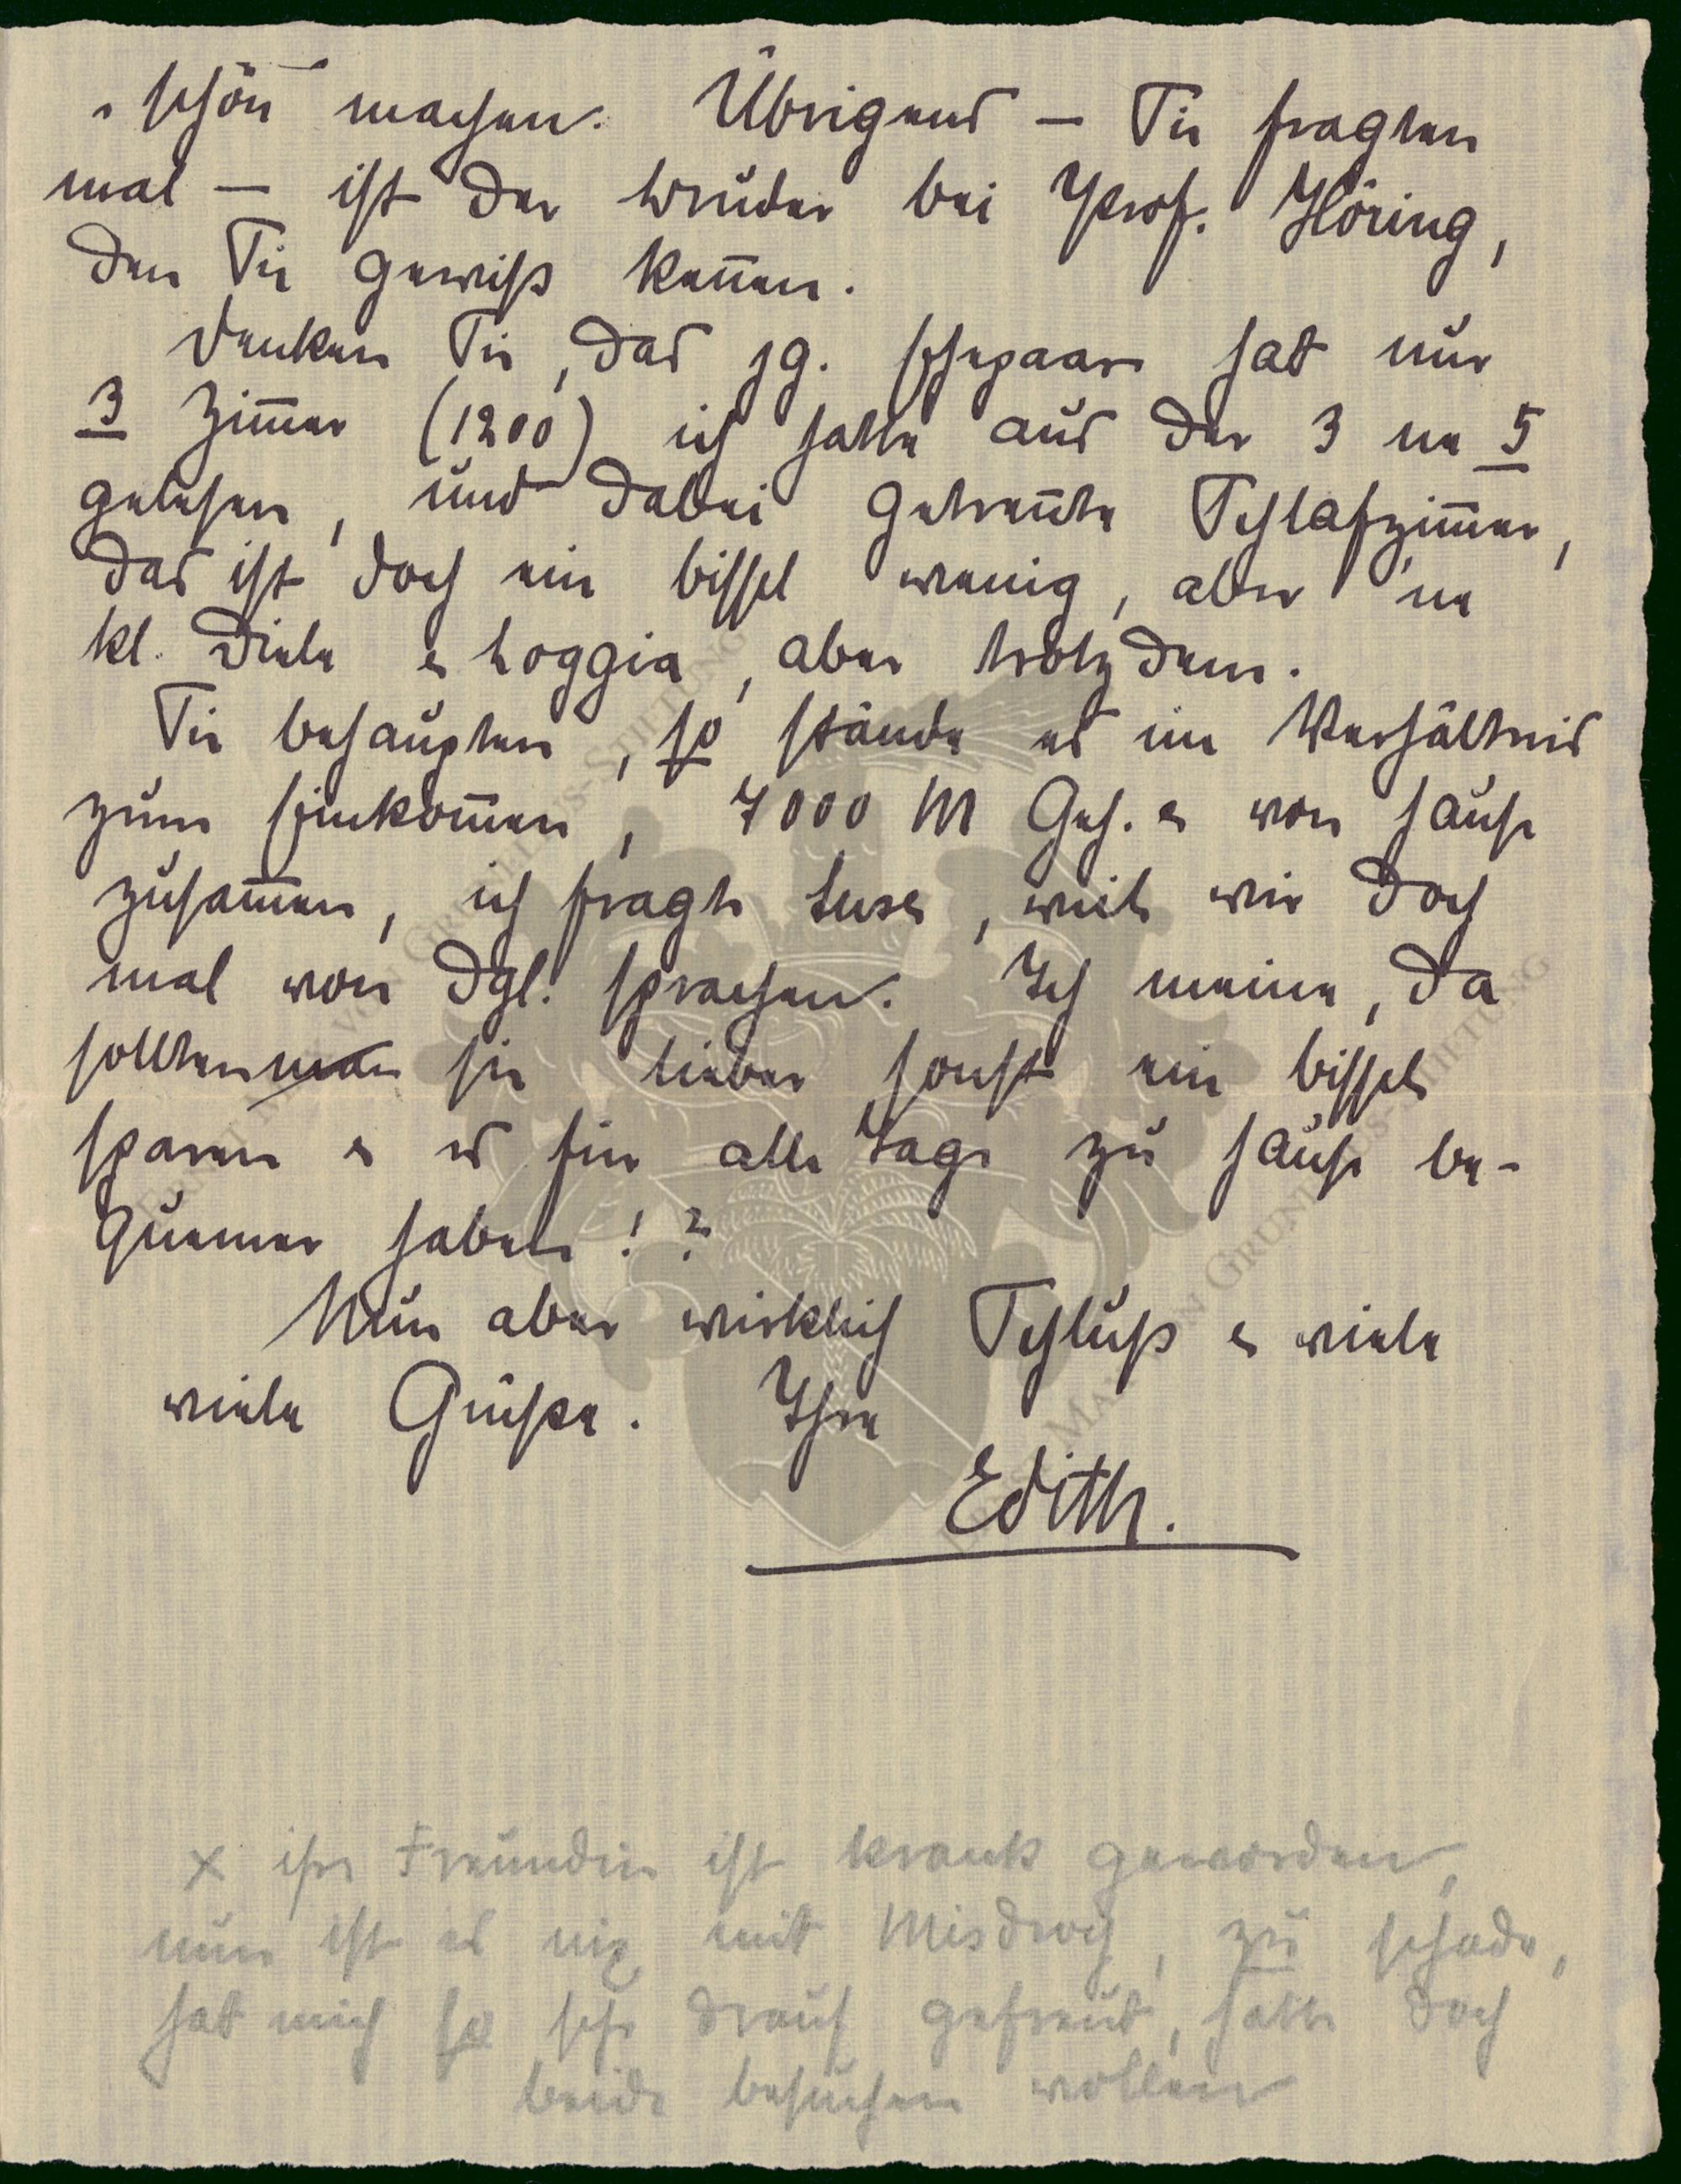 „schön“ machen. Übrigens – Sie fragten
mal – ist der Bruder bei Prof. Höring,
den Sie gewiß kennen.
Denken Sie, das jg. Ehepaar hat nur
3 Zimmer (1200) ich hatte aus der 3 ne 5
gelesen, und dabei getrennte Schlafzimmer,
das ist doch ein bissel wenig, aber 'ne
kl. Diele & Loggia, aber trotzdem.
Sie behaupten, so stände es im Verhältnis
zum Einkommen, 7000 M Geh. & von Hause
zusammen, ich fragte Luse, weil wir doch
mal von dgl. sprachen. Ich meine, da
sollten man sie lieber sonst ein bissel
sparen & es für alle Tage zu Hause be-
quemer haben!?
Nun aber wirklich Schluß & viele
viele Grüße. Ihre
Edith.
x ihre Freundin ist krank geworden,
nun ist es nix mit Misdroy, zu schade,
hat mich so sehr drauf gefreut, hatte doch
beide besuchen wollen